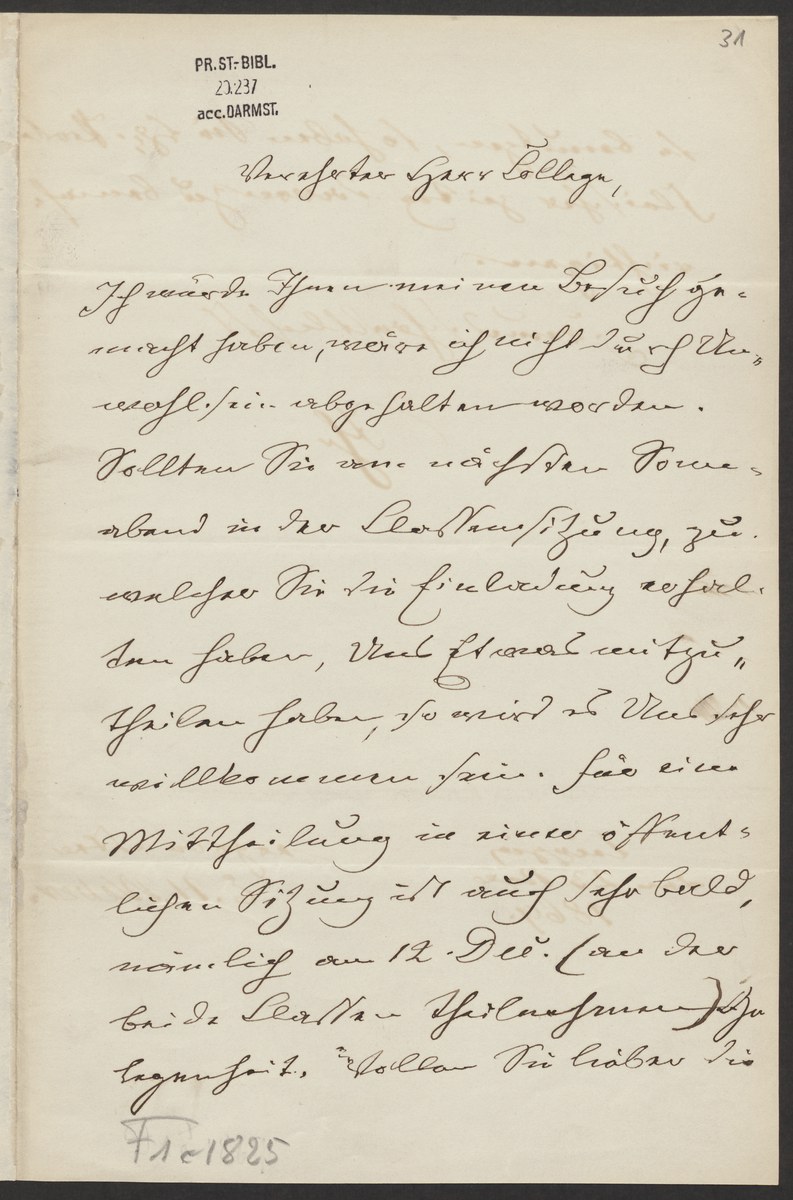 31
PR.ST.-BIBL.
20.237
acc.DARMST.
Verehrter Herr College,
Ich würde Ihnen meinen Besuch ge-
macht haben, wäre ich nicht durch Un-
wohlsein abgehalten worden.
Sollten Sie am nächsten Sonn-
abend in der Classensitzung, zu
welcher Sie die Einladung erhal-
ten haben, Uns Etwas mitzu-
theilen haben, so wird es Uns sehr
willkommen sein. Für eine
Mittheilung in einer öffent-
lichen Sitzung ist auch sehr bald,
nämlich am 12. Dec. (an der
beide Classen theilnehmen) Ge-
legenheit. Wollen Sie lieber die
F1c 1825